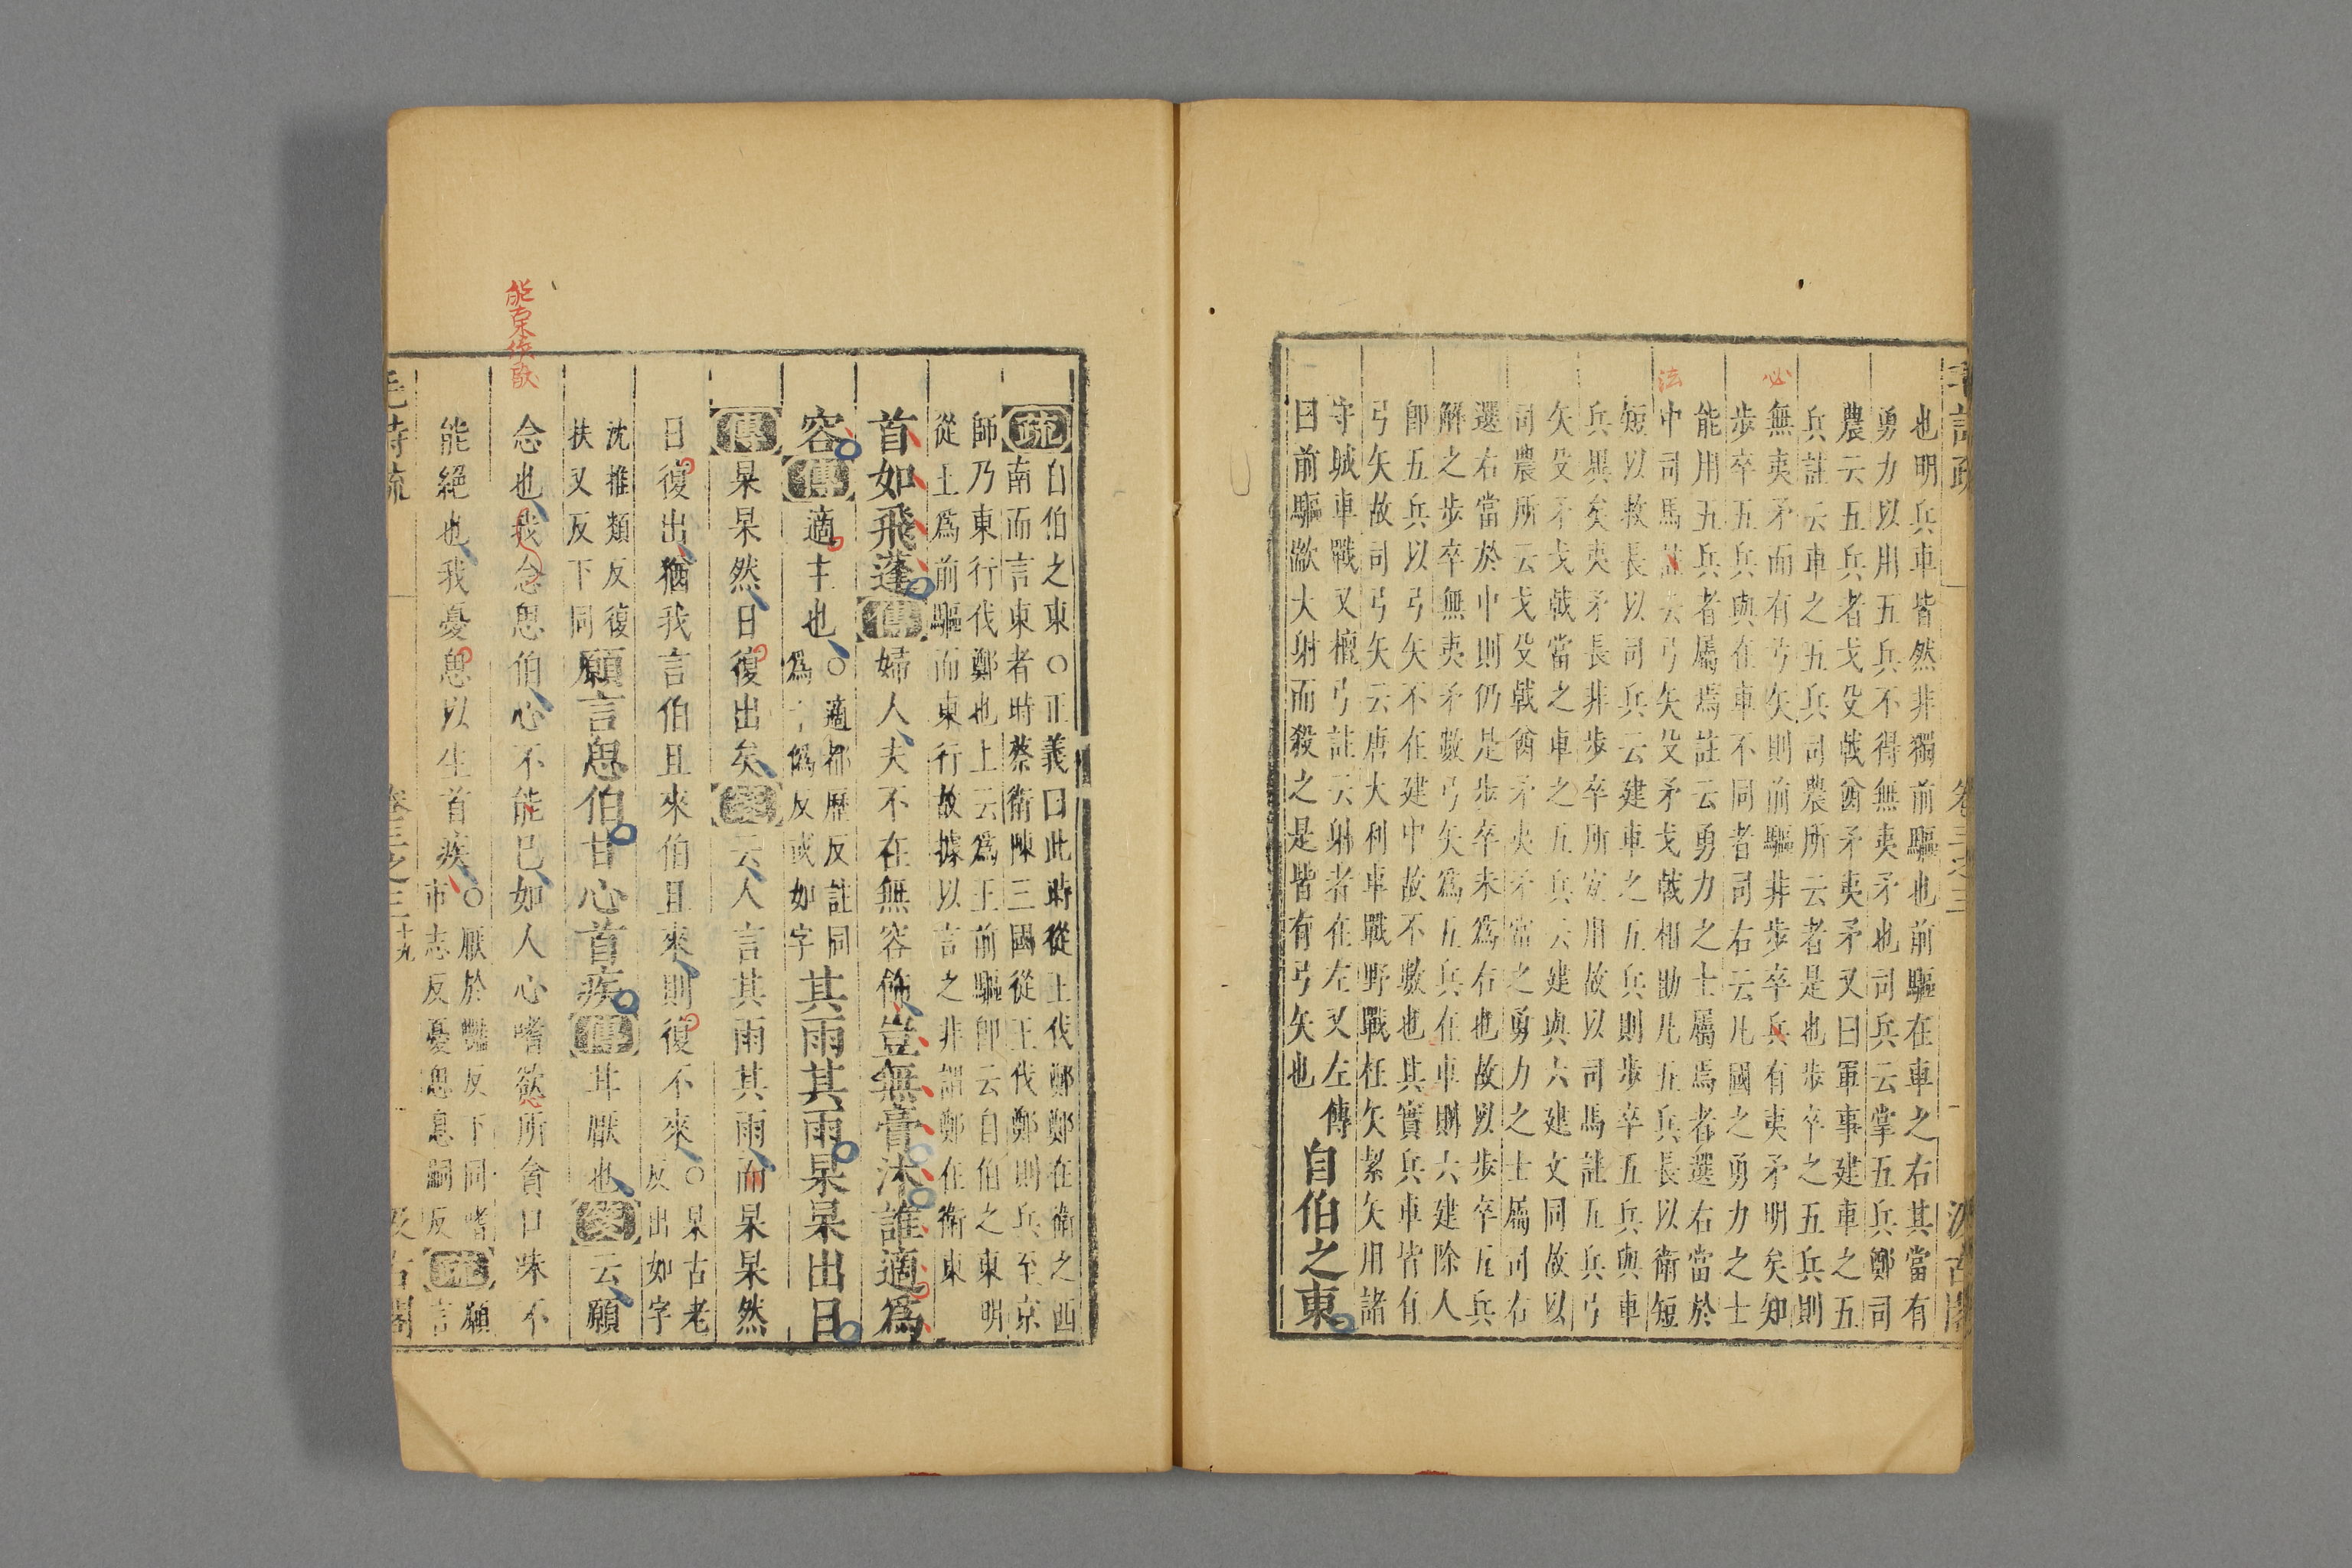 毛詩疏
卷三之三
汲古閣
也明兵車皆然非獨前驅也前驅在車之右其當有
勇力以用五兵不得無夷矛也司兵云掌五兵鄭司
農云五兵者戈殳戟酋矛夷矛又曰軍事建車之五
兵註云車之五兵司農所云者是也步卒之五兵則
無夷矛而有弓矢則前驅非步卒兵有夷矛明矣知
必
步卒五兵與在車不同者司右云凡國之勇力之士
能用五兵者屬焉註云勇力之士屬焉者選右當於
中司馬註云弓矢殳矛戈戟相助凡五兵長以衛短
法
短以救長以司兵云建車之五兵則步卒五兵與車
兵異矣夷矛長非步卒所宜用故以司馬註五兵弓
矢殳矛戈戟當之車之五兵云建與六建文同故以
司農所云戈殳戟酋矛夷矛當之勇力之士屬司右
選右當於中則仍是步卒未爲右也故以步卒五兵
解之步卒無夷矛數弓矢爲五兵在車則六建除人
卽五兵以弓矢不在建中故不數也其實兵車皆有
弓矢故司弓矢云唐大利車戰野戰枉矢絜矢用諸
守城車戰又檀弓註云射者在左又左傳
曰前驅歂犬射而殺之是皆有弓矢也
自伯之東
疏
自伯之東○正義曰此時從王伐鄭鄭在衛之西
南而言東者時蔡衛陳三國從王伐鄭則兵至京
師乃東行伐鄭也上云爲王前驅卽云自伯之東明
從王爲前驅而東行故據以言之非謂鄭在衛東
首如飛蓬傳婦人夫不在無容飾豈無膏沐誰適爲
容傳適主也
○適都歷反註同
爲于僞反或如字
其雨其雨杲杲出日
傳杲杲然日復出矣箋云人言其雨其雨而杲杲然
日復出猶我言伯且來伯且來則復不來
○杲古老
反出如字
沈推類反復
扶又反下同
願言思伯甘心首疾傳甘厭也箋云願
念也我念思伯心不能已如人心嗜慾所貪口味不
能宋作欲
能絕也我憂思以生首疾
○厭於豔反下同嗜
市志反憂思息嗣反
疏
願
言
毛詩疏
卷三之三
十九
汲古閣